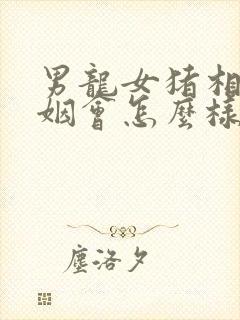 男龍女猪相
姻會怎麼樣
塵洛夕